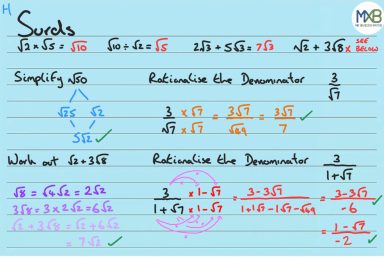 Surds
MXB
MR BURTON MATHS
√2 × √5 = √10 √10 ÷ √2 = √5 2√3 + 5√3 = 7√3 √2 + 3√8 × SEE BELOW
Simplify √50
√25 √2
5√2 ✓
Rationalise the Denominator 3/√7
3/√7 × √7/√7 = 3√7/√49 = 3√7/7 ✓
Work out √2 + 3√8
√8 = √4√2 = 2√2
3√8 = 3 × 2√2 = 6√2
√2 + 3√8 = √2 + 6√2
= 7√2 ✓
Rationalise the Denominator 3/1+√7
3/1+√7 × 1-√7/× 1-√7 = 3-3√7/1+1√7-1√7-√49 = 3-3√7/-6 ✓
= 1-√7/-2 ✓